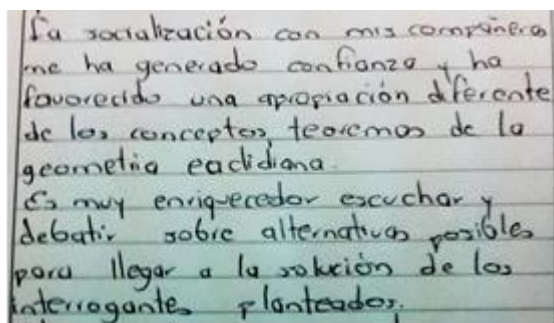 La socialización con mis compañeros
me ha generado confianza y ha
favorecido una apropiación diferente
de los conceptos, teoremas de la
geometria euclidiana.
Es muy enriquecedor escuchar y
debatir sobre alternativas posibles
para llegar a la solución de los
interrogantes planteados.